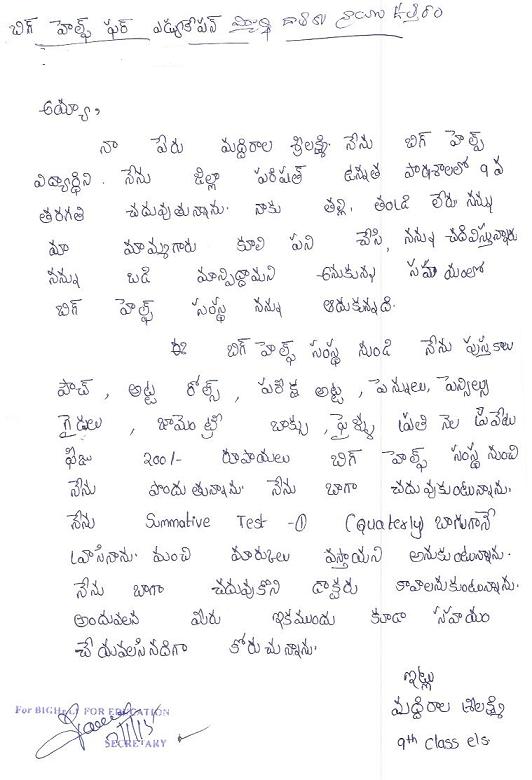 బిగ్ హెల్ప్ ఫర్ ఎడ్యుకేషన్ సంస్థ వారికి వ్రాయు ఉత్తరం
అయ్యా,
నా పేరు మద్దిరాల శ్రీలక్ష్మి. నేను బిగ్ హెల్ప్
విద్యార్థిని. నేను జిల్లా పరిషత్ ఉన్నత పాఠశాలలో 9 వ
తరగతి చదువుతున్నాను. నాకు తల్లి, తండ్రి లేరు. నన్ను
మా మామ్మగారు కూలి పని చేసి, నన్ను చదివిస్తున్నారు
నన్ను బడి మాన్పిద్దామని అనుకున్న సహయంలో
బిగ్ హెల్ప్ సంస్థ నన్ను ఆదుకున్నది.
ఈ బిగ్ హెల్ప్ సంస్థ నుండి నేను పుస్తకాలు
పౌచ్, అట్ట రోల్స్, పరీక్ష అట్ట, పెన్నులు, పెన్సిల్సు
గైడులు, జామెంట్రి బాక్సు, ఫైళ్ళు ప్రతి నెల ప్రైవేటు
ఫీజు 200/- రూపాయలు బిగ్ హెల్ప్ సంస్థ నుంచి
నేను పొందుతున్నాను. నేను బాగా చదువుకుంటున్నాను.
నేను Summative Test -① (Quaterly) బాగుగానే
వ్రాసినాను. మంచి మార్కులు వస్తాయని అనుకుంటున్నాను.
నేను బాగా చదువుకొని డాక్టరు కావాలనుకుంటున్నాను.
అందువలన మీరు ఇకముందు కూడా సహాయం
చేయవలసినదిగా కోరుచున్నాను.
ఇట్లు
మద్దిరాల శ్రీలక్ష్మి
9th class e/s.
For BIGHELP FOR EDUCATION
SECRETARY